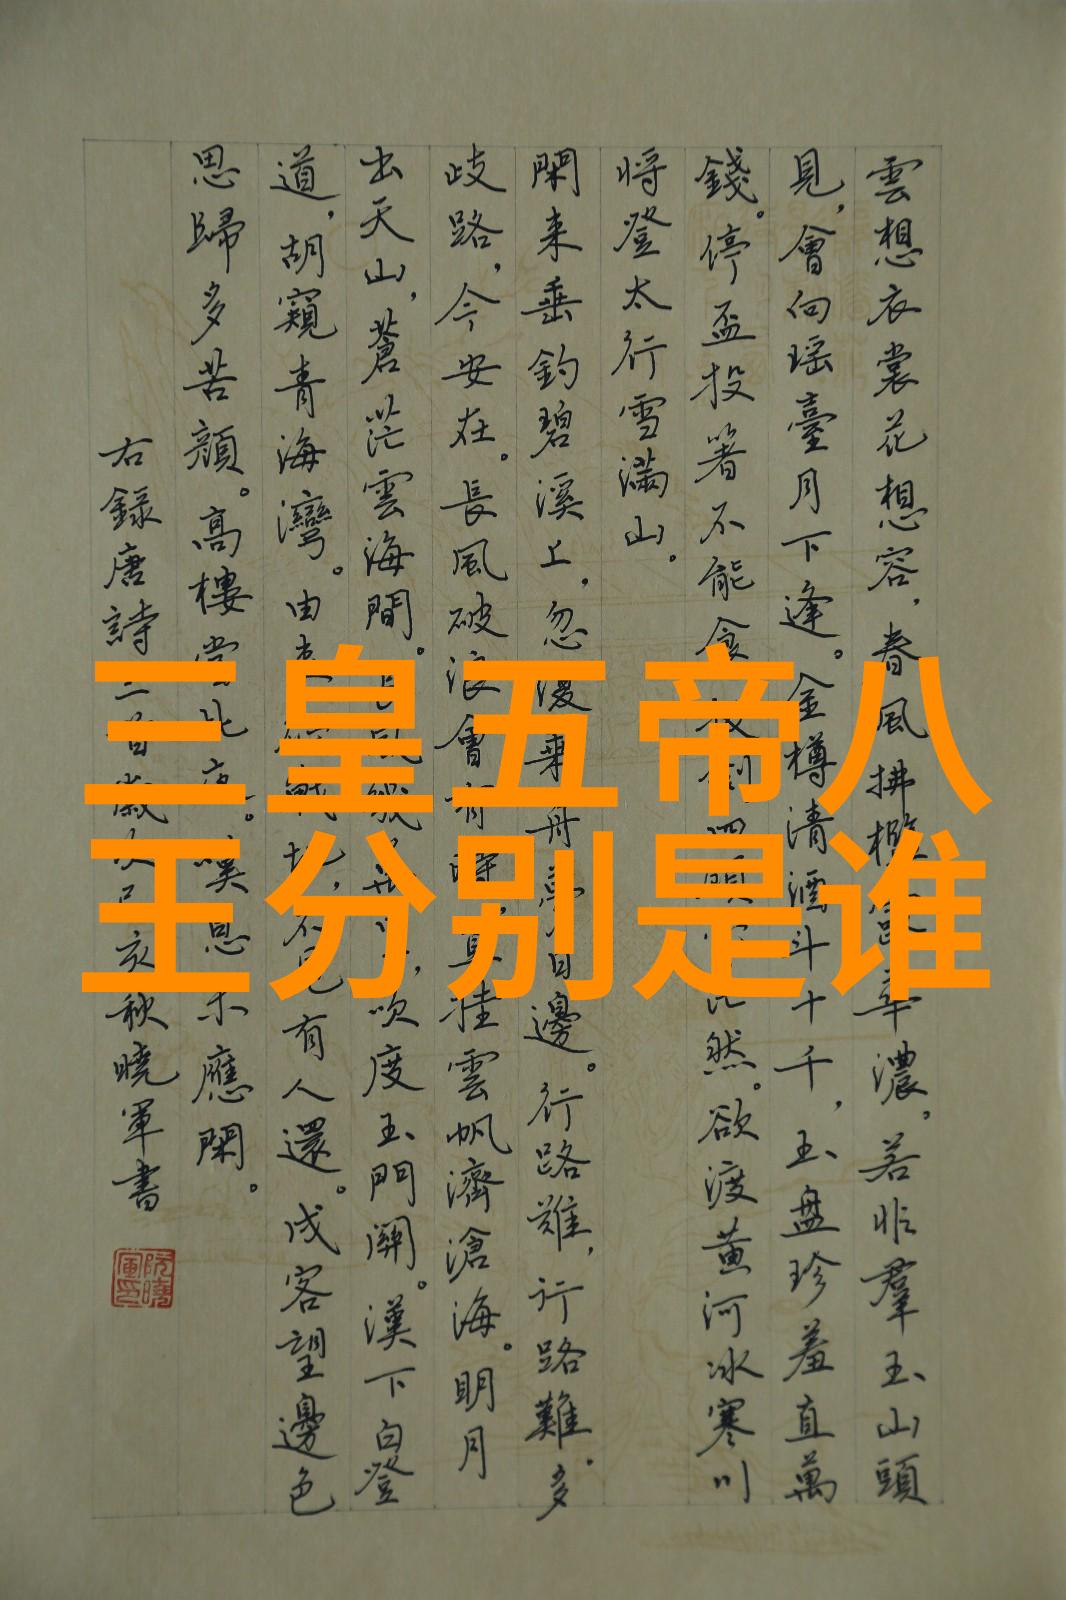 雲想衣裳花想容，春風拂檻露華濃。若非羣玉山頭
見，會向瑶臺月下逢。金樽清酒斗十千，玉盤珍羞直萬
錢。停盃投箸不能食 然。欲渡黄河冰寒川
将登太行雪滿山。
閑来垂釣碧溪上，忽復乘舟夢日邊。行路難，行路難。多
歧路，今安在。長風破浪會有時，直挂雲帆濟滄海。明月
出天山，蒼茫雲海間。 吹度玉門關。漢下白登
道，胡窺青海灣。由 不見有人還。戍客望邊色
思歸多苦顔。高樓當此夜。嘆息未應閑。
右録唐詩三首歲次己亥秋曉軍書
阮曉軍印
三皇五帝八
王分别是谁